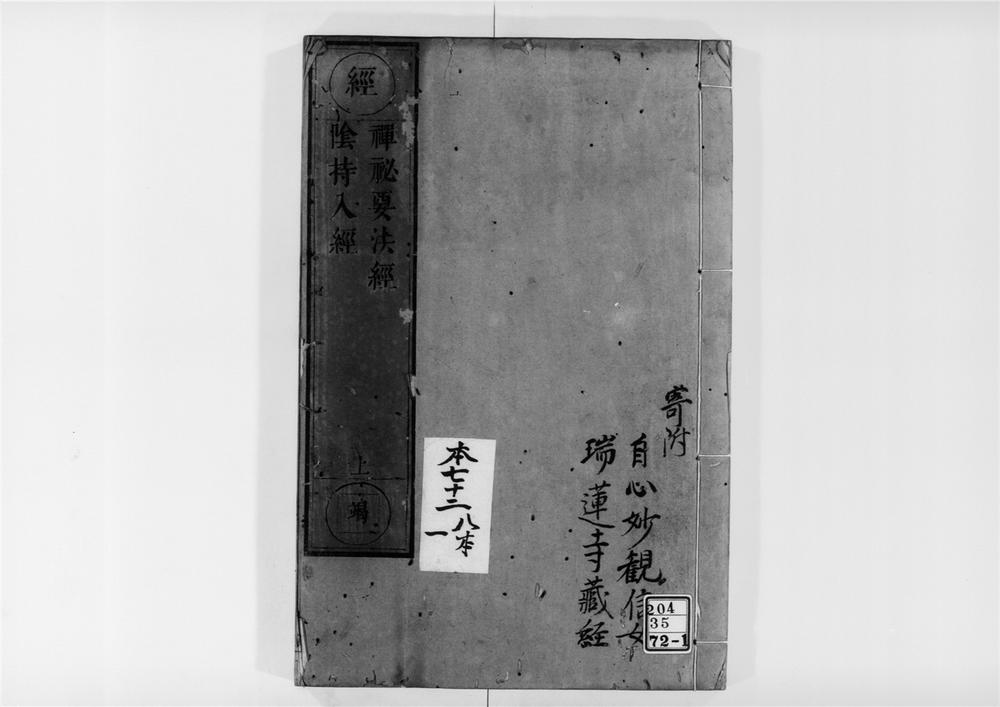 寄附
自心妙観信女
瑞蓮寺藏経
經
禪祕要法經
陰持入經
上
竭
本七十二
八本
一
204
35
72-1